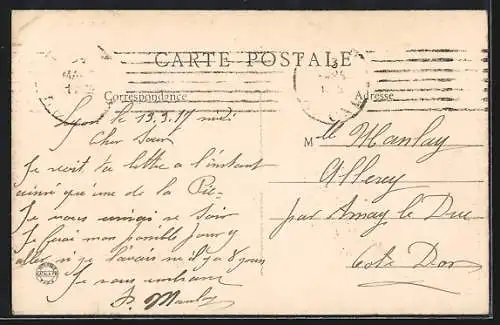 CARTE POSTALE
Correspondance
Adresse
Lyon le 13.3.17 midi
Cher Sœur
Je reçoit ta lettre a l'instant
ainsi qu'une de la
Je vous ce soir
Je ferai mon posible pour y
aller si je l'avais il y a 8 jours
Je vous embrasse
P. Manlay
M lle Manlay
Allerey
par Arnay le Duc
Cote Dor